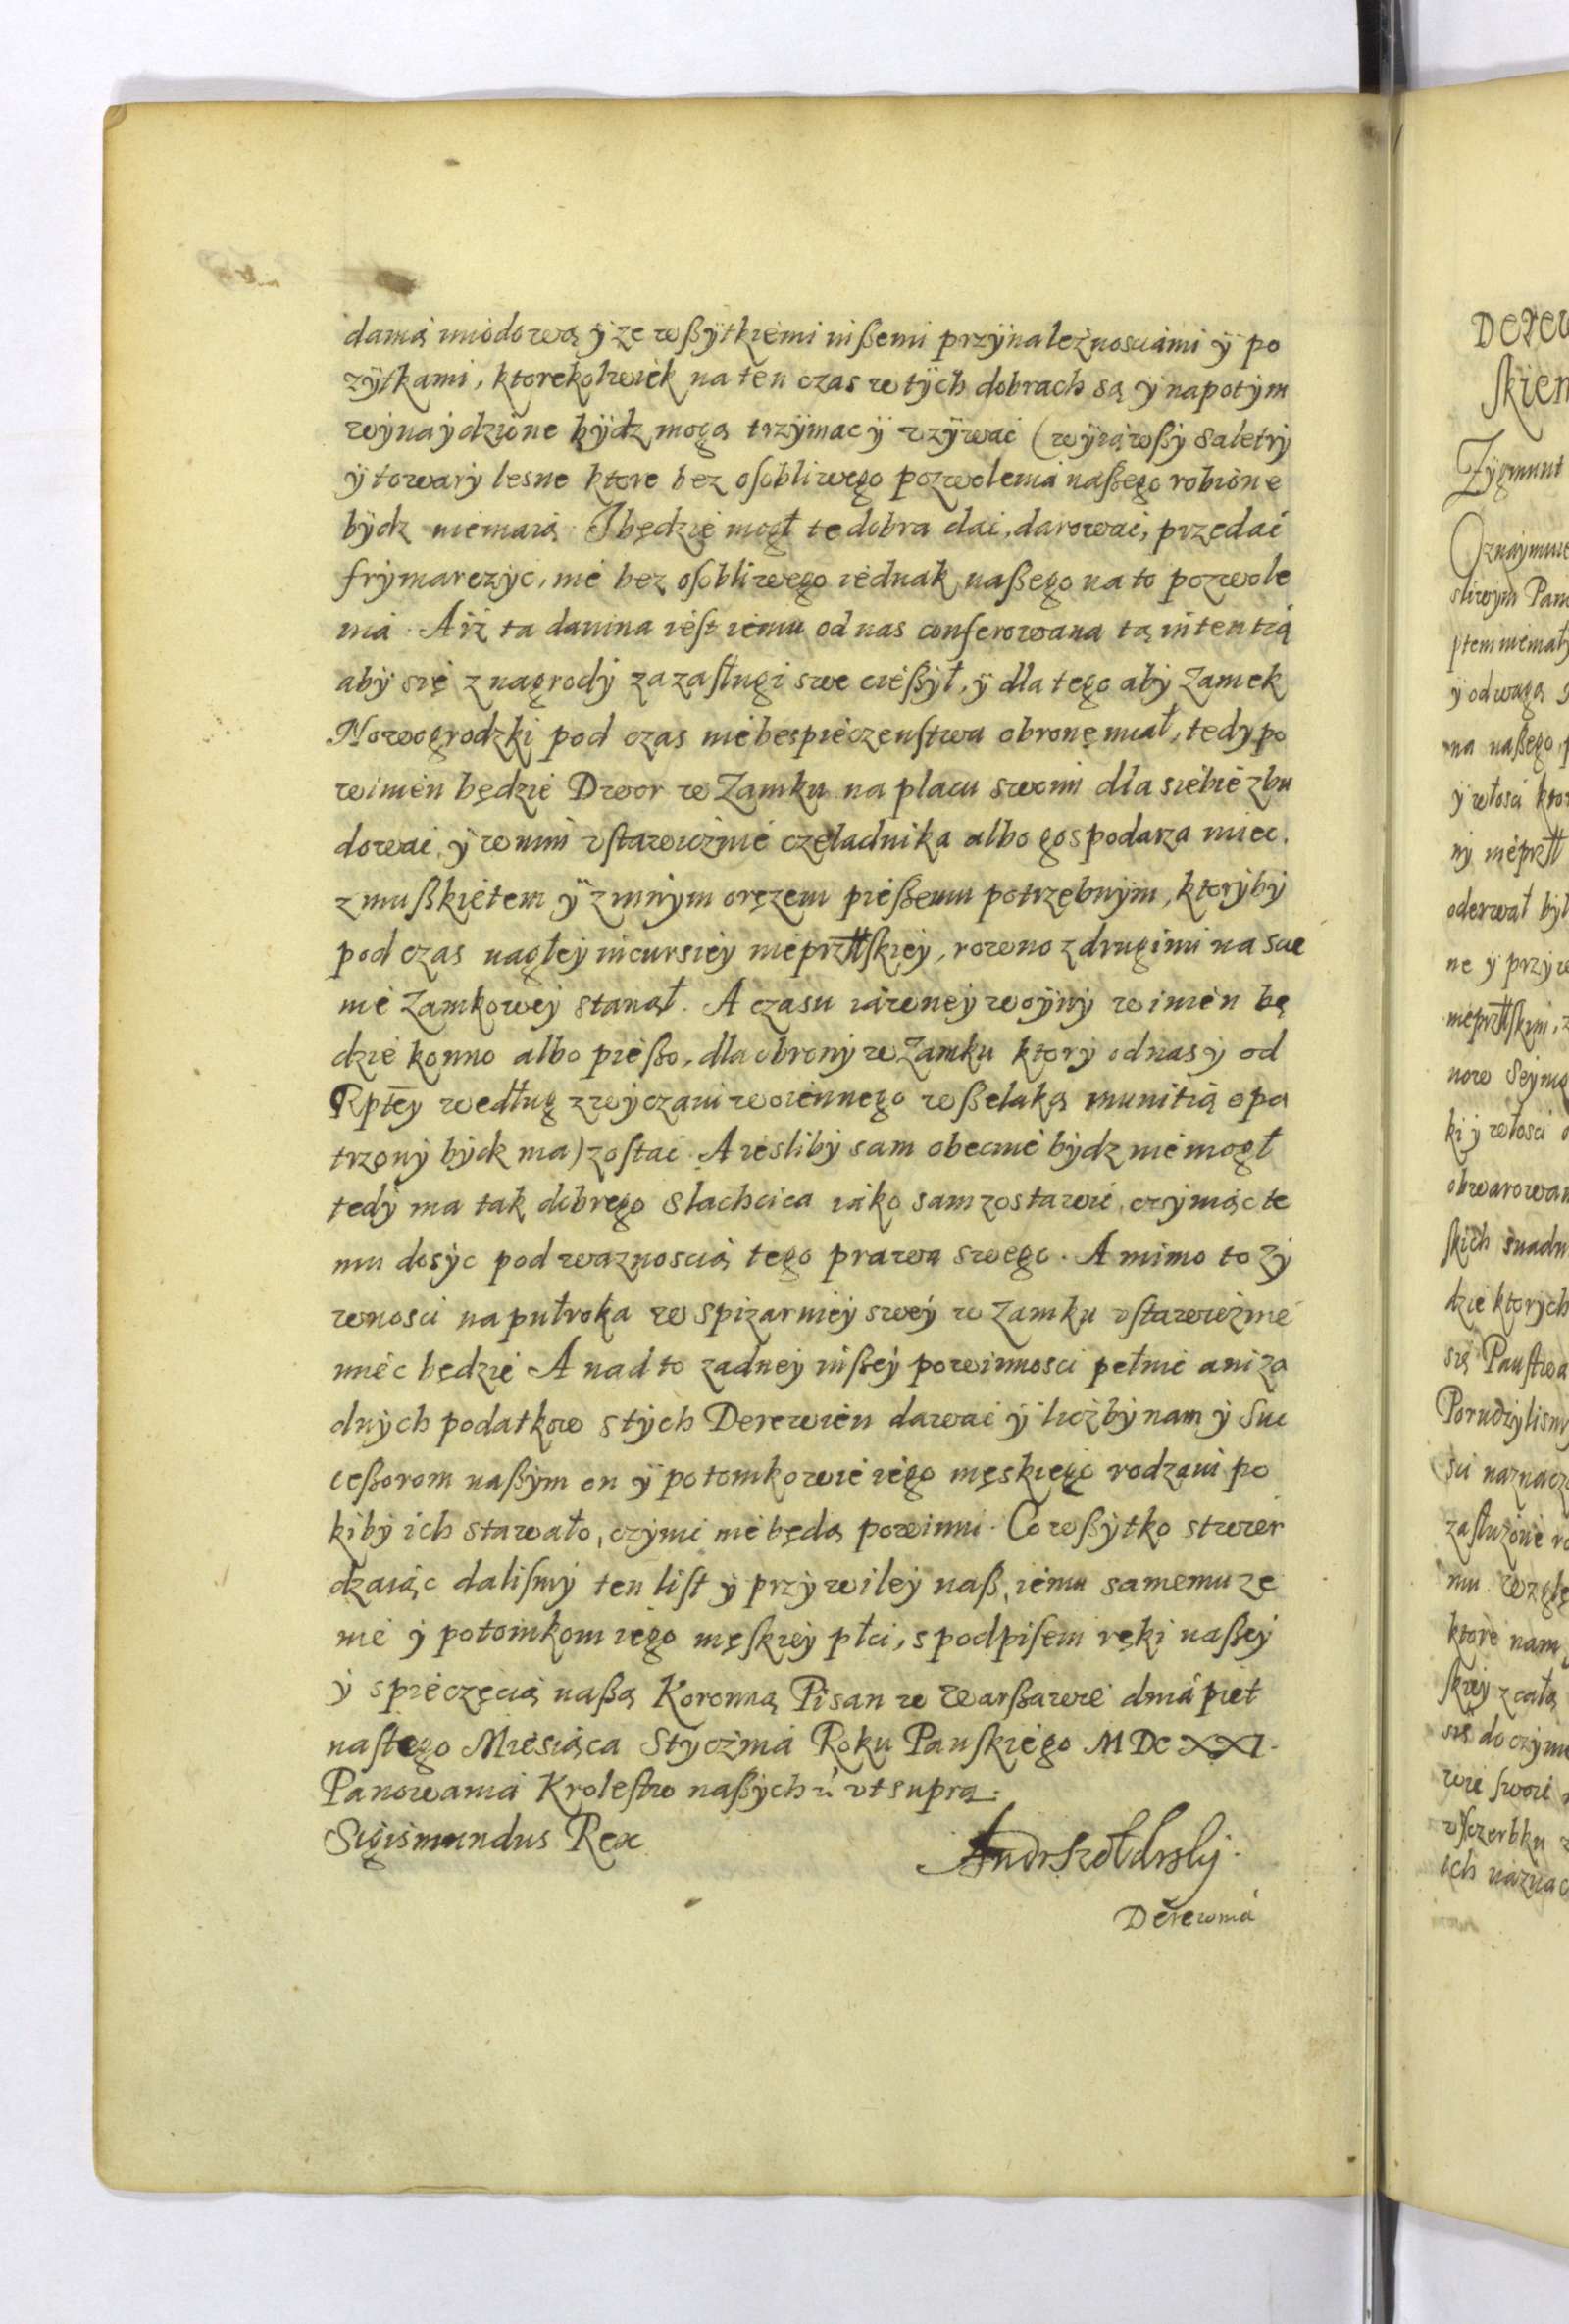 danią miodową ÿ ze wßÿtkiemi inßemi przÿnależnosciami ÿ po
zÿtkami, ktorekolwiek na ten czas w tÿch dobrach są ÿ napotÿm
wÿnaÿdzione bÿdz mogą trzÿmac ÿ vzÿwac (wÿiąwßÿ Saletrÿ
ÿ towarÿ lesne ktore bez osobliwego pozwolenia naßego robione
bÿdz niemaią. I będzie mogł te dobra dac, darowac, przedac
frÿmarczÿc, nie bez osobliwego iednak naßego na to pozwole
nia. A iż ta danina iest iemu od nas conferowana tą intentią
abÿ się z nagrodÿ za zasługi swe cießÿł, ÿ dla tego abÿ Zamek
Nowogrodzki pod czas niebespieczenstwa obronę miał, tedÿ po
winien będzie Dwor w Zamku na placu swoim dla siebie zbu
dowac, ÿ w nim vstawicznie czeladnika albo gospodarza miec.
z mußkietem ÿ z innÿm oręzem pießemu potrzebnÿm, ktorÿbÿ
pod czas nagłeÿ incursieÿ nieprzllskieÿ, rowno z drugimi na scie
nie Zamkoweÿ stanął. A czasu iawneÿ woÿnÿ winien bę
dzie konno albo pießo, dla obronÿ w Zamku ktorÿ od nas ÿ od
Rpteÿ według zwÿczaiu woiennego wßelaką munitią opa
trzonÿ bÿdz ma) zostac. A iesliby sam obecnie bÿdz niemogł
tedÿ ma tak dobrego Slachcica iako sam zostawic, czÿniąc te
mu dosÿc pod waznoscią tego prawa swego. A mimo to zÿ
wnosci na pułroka w spizarnieÿ sweÿ w Zamku vstawicznie
miec będzie A nad to zadneÿ inßeÿ powinnosci pełnic ani za
dnÿch podatkow s tÿch Derewien dawac ÿ liczbÿ nam ÿ Suc
ceßorom naßÿm on ÿ potomkowie iego męskiego rodzaiu po
kibÿ ich stawało, czÿnic nie będą powinni. Co wßÿtko stwier
dzaiąc dalismÿ ten list ÿ przÿwileÿ naß, iemu samemu ze
nie ÿ potomkom iego męskieÿ płci, s podpisem ręki naßeÿ
ÿ s pieczęcią naßą Koronną Pisan w Warßawie dnia piet
nastego Miesiąca Stÿcznia Roku Panskiego MDCXXI.
Panowania Krolestw naßÿch vt supra.
Sigismundus Rex
Derewnia
Derew
skiem
Zÿgmunt
Oznaÿmue
sliwÿm Pan
ptem niemałÿ
ÿ odwagą
na naßego
ÿ włosci ktor
nÿ nieprzll
oderwał bÿł
ne ÿ przÿw
nieprzllskim
now Seÿmo
ki ÿ włosci
obwarowan
skich snadn
dzie ktorych
się Panstwa
Poruczÿlismÿ
sci naznacz
zasłuzone
mu Wzglę
ktore nam
skieÿ z całą
się do czÿnie
wie swoi
vsczerbku
ich naznac